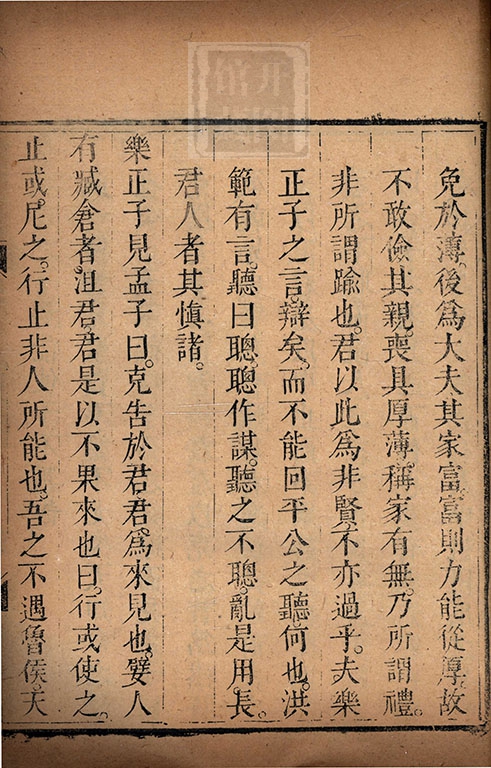 免於薄。後爲大夫其家富。富則力能從厚故
不敢儉其親。喪具厚薄。稱家有無。乃所謂禮。
非所謂踰也。君以此爲非賢。不亦過乎。夫樂
正子之言。辯矣。而不能回平公之聽。何也。洪
範有言。聽曰聰。聰作謀。聽之不聰。亂是用長。
君人者其慎諸。
樂正子見孟子曰。克告於君。君爲來見也。嬖人
有臧倉者。沮君。君是以不果來也。曰。行或使之。
止或尼之。行止非人所能也。吾之不遇魯侯。天